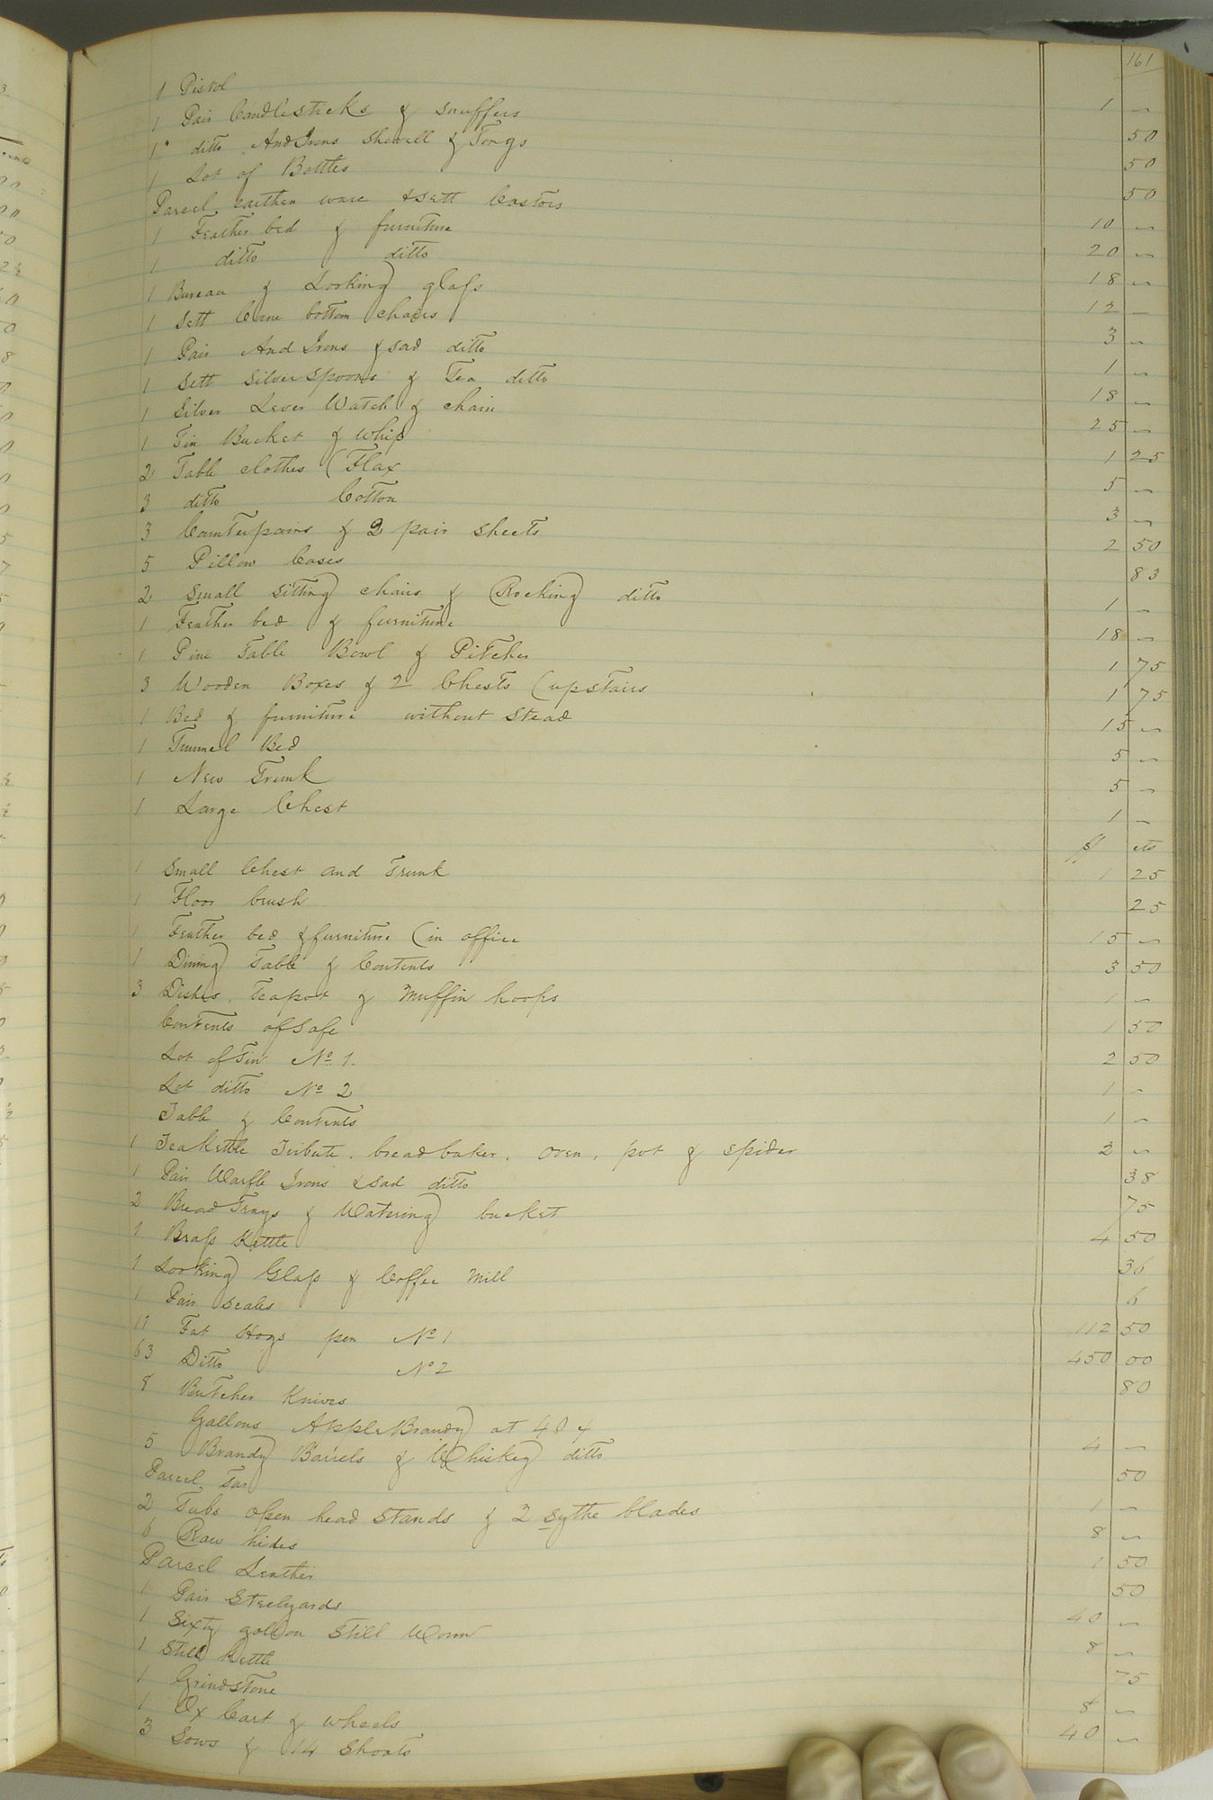 161
1 Pistol 1 〃
1 Pair Candlesticks & snuffers 50
1 ditto And Irons Shovell & Tongs 50
1 Lot of Bottles 50
Parcel earthen ware & Sett Castors 10 〃
1 Feather bed & furniture 20 〃
1 ditto ditto 18 〃
1 Bureau & Looking glass 12 〃
1 Sett Cane bottom chairs 3 〃
1 Pair And Irons & sad ditto 1 〃
1 Sett Silver spoons & Tea ditto 18 〃
1 Silver Lever Watch & chain 25 〃
1 Tin Bucket & whip 1 25
2 Table clothes (Flax 5 〃
3 ditto Cotton 3 〃
3 Counterpains & 2 pair sheets 2 50
5 Pillow Cases 83
2 Small sitting chairs & Rocking ditto 1 〃
1 Feather bed & furniture 18 〃
1 Pine Table Bowl & Pitcher 1 75
3 Wooden Boxes & 2 Chests (upstairs 1 75
1 Bed & furniture without stead 15 〃
1 Trunnel Bed 5 〃
1 New Trunk 5 〃
1 Large Chest 1 〃
$ cts
1 Small Chest and Trunk 1 25
1 Floor brush 25
1 Feather bed & furniture (in office 15 〃
1 Dining Table & Contents 3 50
3 Dishes, Teapot & Muffin hoops 1 〃
Contents of Safe 1 50
Lot of Tin No 1. 2 50
Lot ditto No 2 1 〃
Table & Contents 1 〃
1 Teakettle Tribute, bread baker, oven, pot & spider 2 〃
1 Pair Warfle Irons & sad ditto 38
2 Bread Trays & Watering bucket 75
1 Brass Kettle 4 50
1 Looking Glass & Coffee Mill 36
1 Pair scales 6
17 Fat Hogs pen No 1 112 50
63 Ditto No 2 450 00
8 Butcher Knives 80
Gallons Apple Brandy at 40 ¢
5 Brandy Barrels & Whiskey ditto 4 〃
Parcel Tar 50
2 Tubs open head stands & 2 sythe blades 1 〃
6 Raw hides 8 〃
Parcel Leather 1 50
1 Pair Steelyards 50
1 Sixty gallon Still Worm 40 〃
1 Still Kettle 8 〃
1 Grindstone 75
1 Ox Cart & wheels 8 〃
3 Sows & 14 Shoats 40 〃